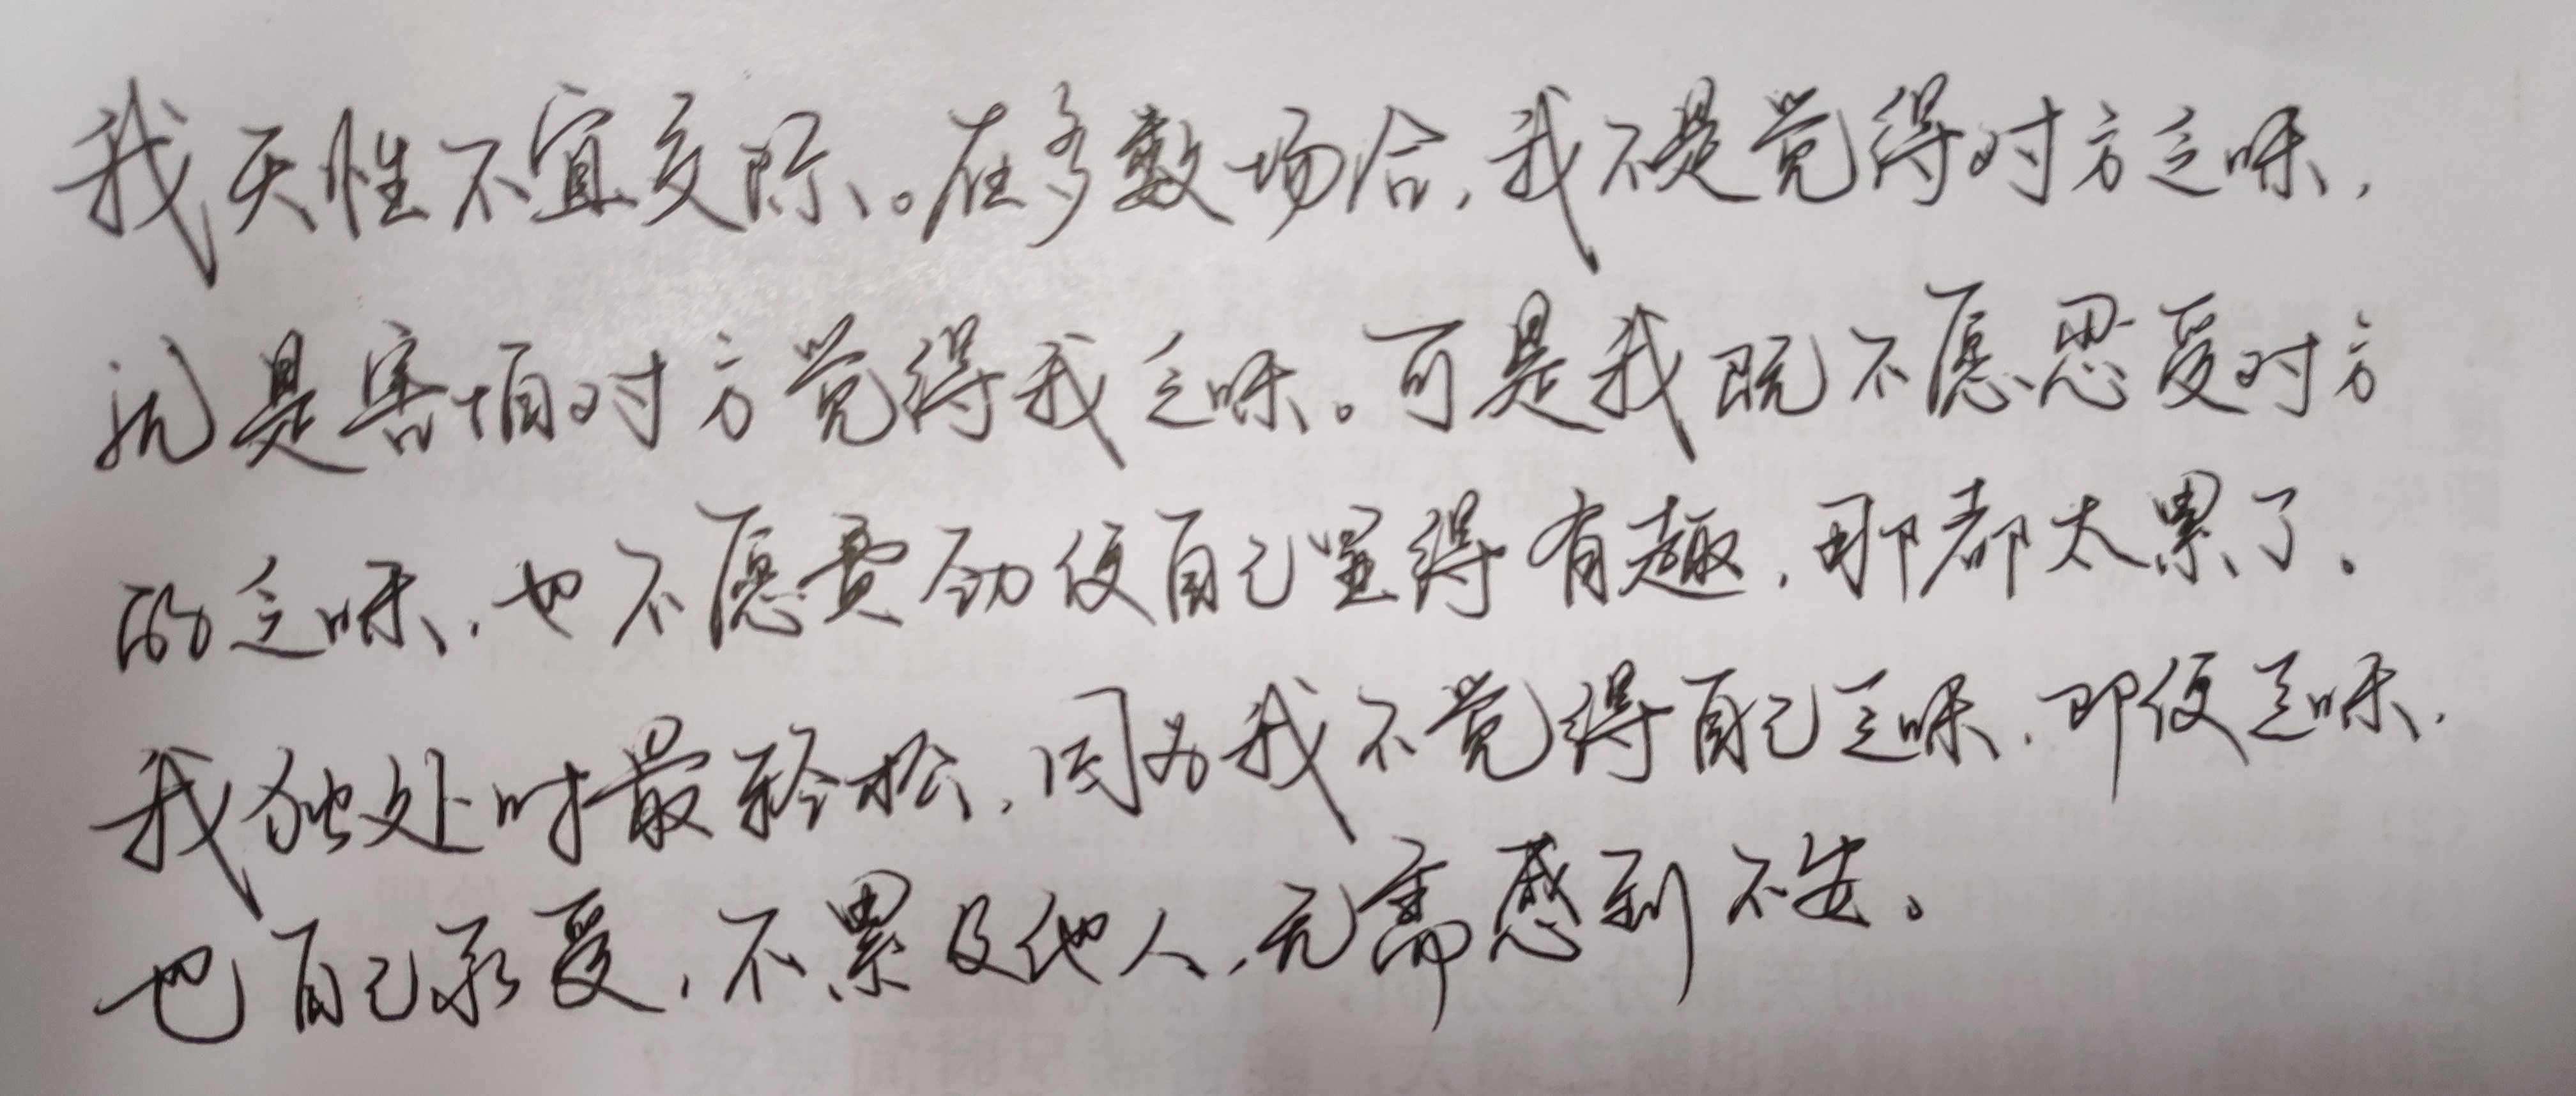 我天性不宜交际。在多数场合,我不是觉得对方乏味,
就是害怕对方觉得我乏味。可是我既不愿忍受对方
的乏味,也不愿费劲使自己显得有趣,那都太累了。
我独处时最轻松,因为我不觉得自己乏味,即便乏味,
也自己承受,不累及他人,无需感到不安。